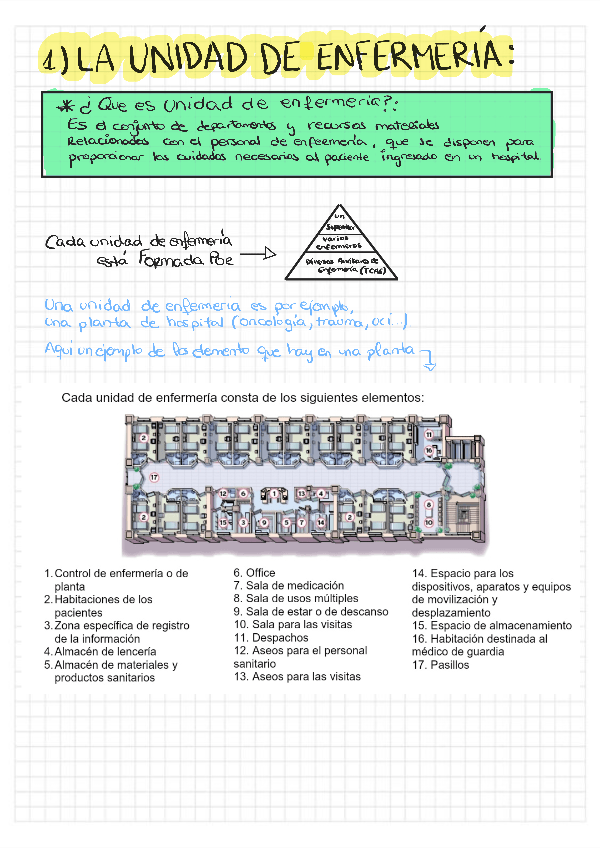 1) LA UNIDAD DE ENFERMERÍA:
* ¿Que es unidad de enfermería?:
Es el conjunto de departamentos y recursos materiales
Relacionados con el personal de enfermería, que se disponen para
proporcionar los cuidados necesarios al paciente ingresado en un hospital.
un
Supervisor
varios
enfermeros
Diversos Auxiliares de
Enfermería (TCAE)
Cada unidad de enfermería
está Formada Por
Una unidad de enfermeria es por ejemplo,
una planta de hospital (oncología, trauma, uci...)
Aqui un ejemplo de los elemento que hay en una planta
Cada unidad de enfermería consta de los siguientes elementos:
2 2 2 2 2 2 11
16
17
12 6 1 13 4 8
2 15 3 9 5 7 14 2 2 10
1. Control de enfermería o de
planta
2. Habitaciones de los
pacientes
3. Zona específica de registro
de la información
4. Almacén de lencería
5. Almacén de materiales y
productos sanitarios
6. Office
7. Sala de medicación
8. Sala de usos múltiples
9. Sala de estar o de descanso
10. Sala para las visitas
11. Despachos
12. Aseos para el personal
sanitario
13. Aseos para las visitas
14. Espacio para los
dispositivos, aparatos y equipos
de movilización y
desplazamiento
15. Espacio de almacenamiento
16. Habitación destinada al
médico de guardia
17. Pasillos